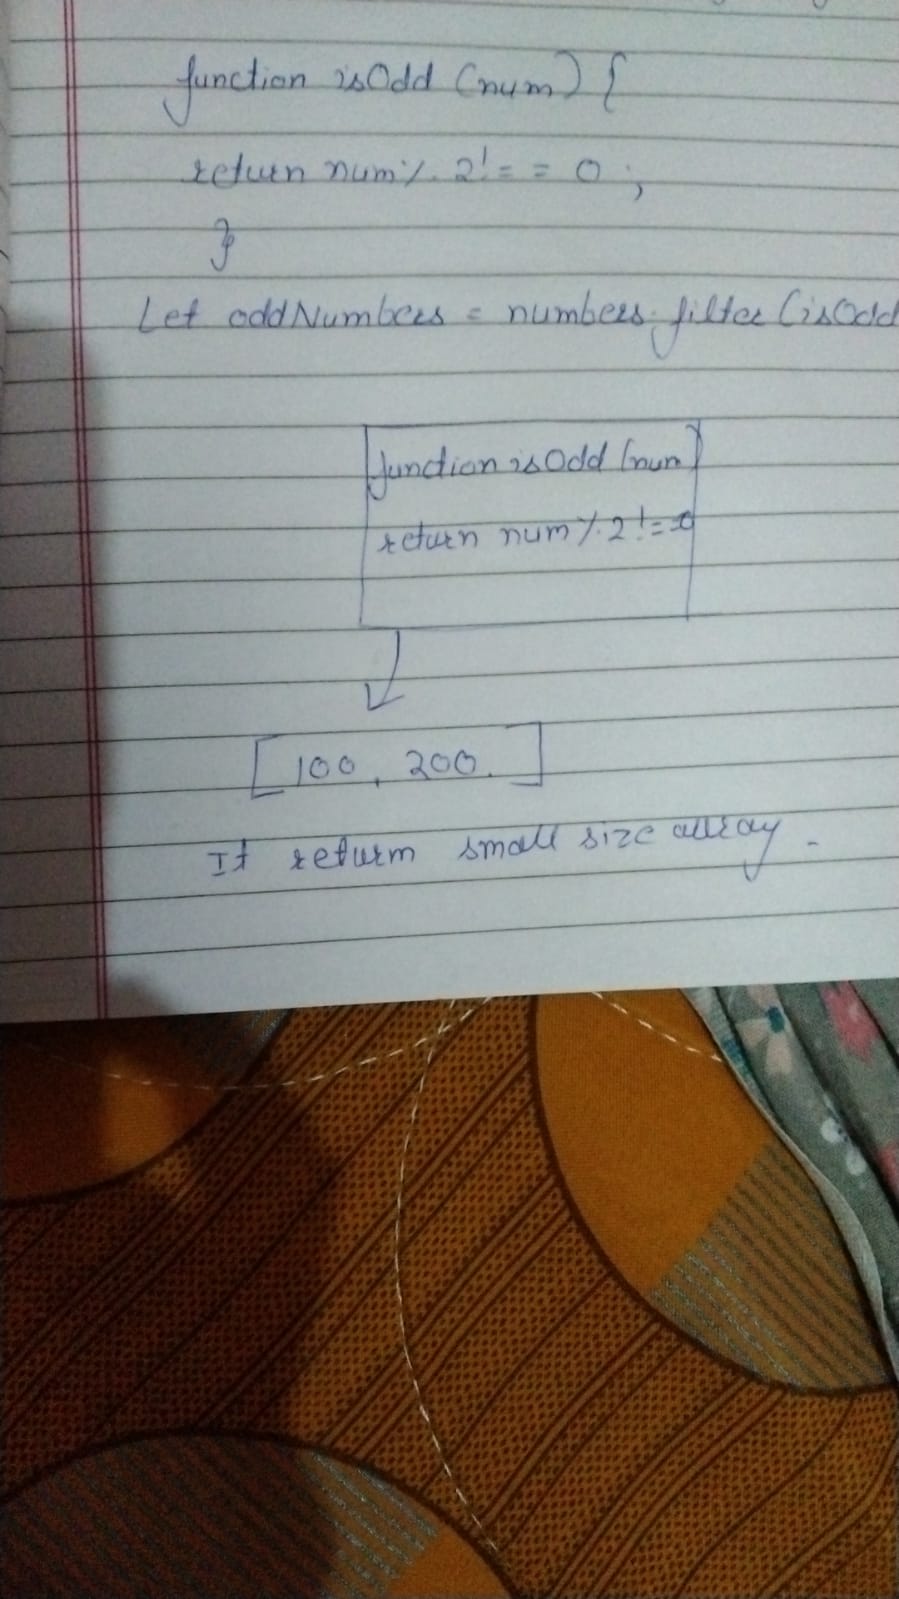 function isOdd (num) {
return num % 2 !== 0 ;
}
Let oddNumbers = numbers.filter (isOdd
function isOdd (num)
return num % 2 !== 0
[ 100, 200. ]
It return small size array.